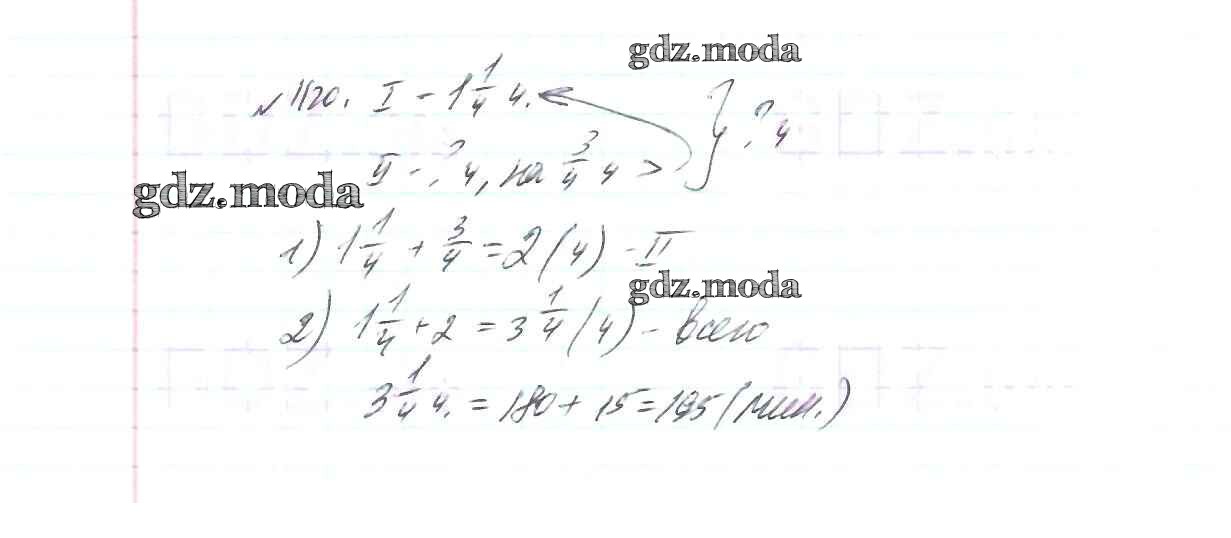 gdz.moda
№1120. I - 1 1/4 ч.
II - ? ч, на 3/4 ч > } ? ч
gdz.moda
1) 1 1/4 + 3/4 = 2 (ч) - II
gdz.moda
2) 1 1/4 + 2 = 3 1/4 (ч) - всего
3 1/4 ч. = 180 + 15 = 195 (мин.)